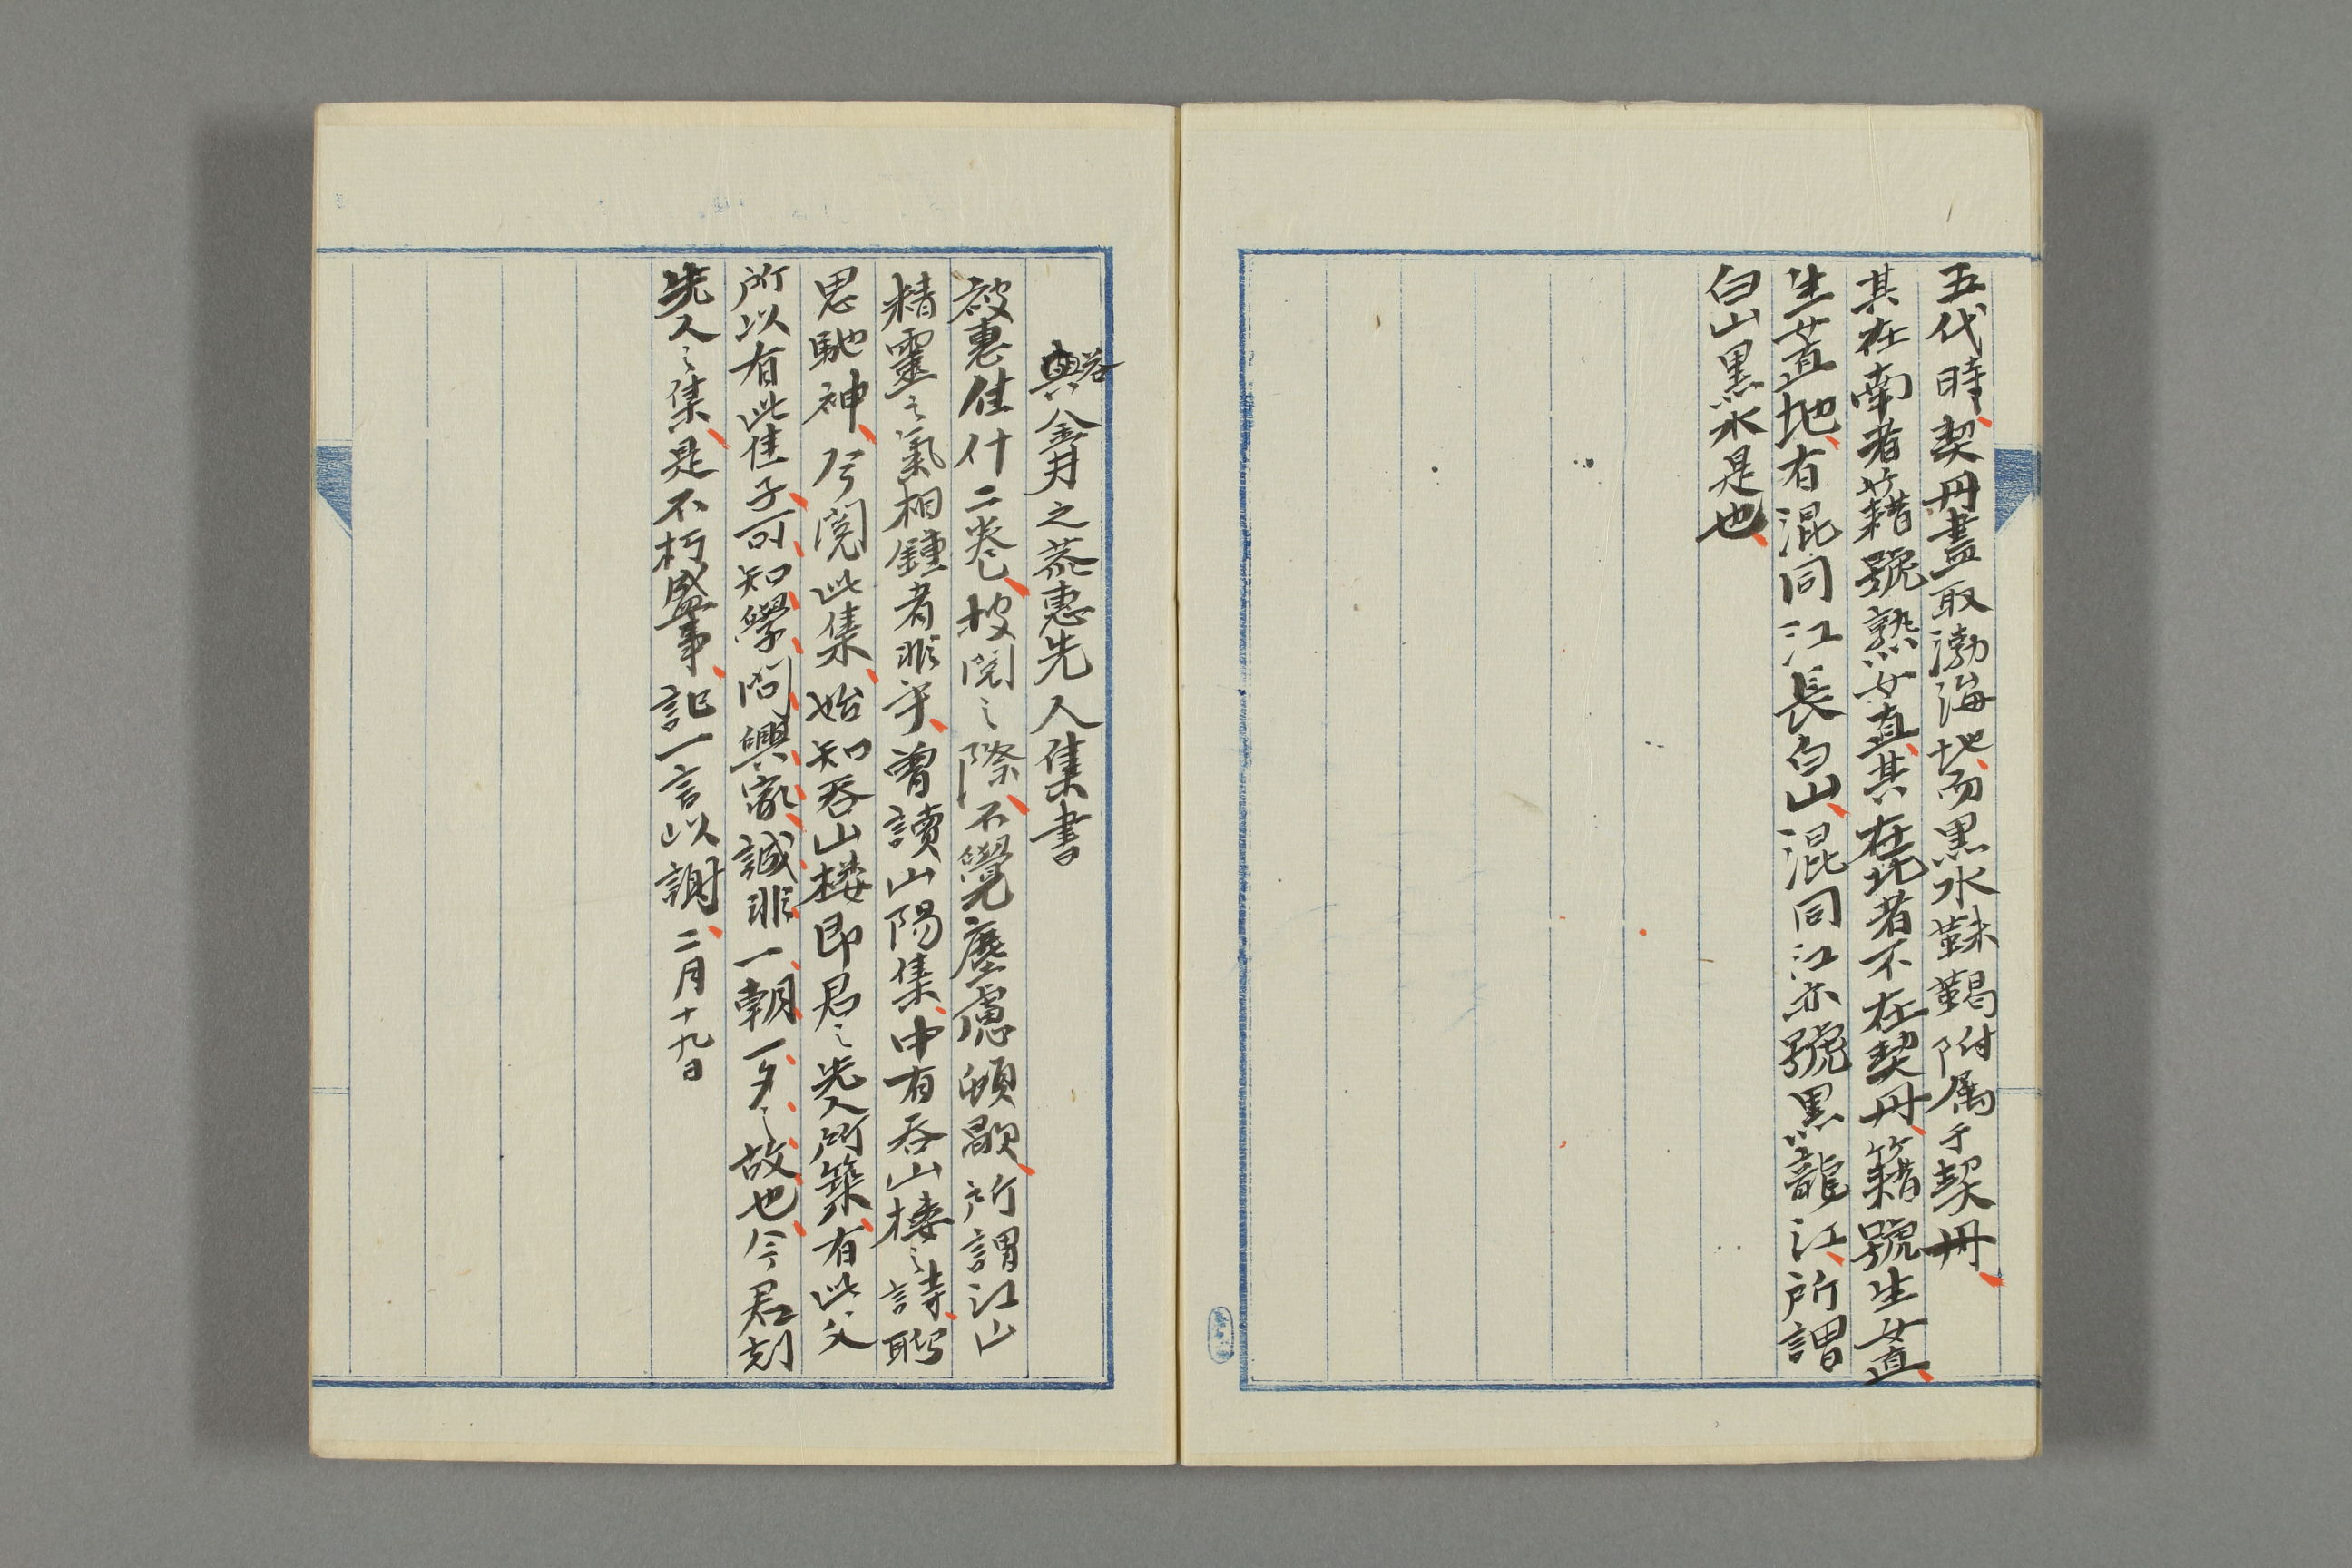 五代時契丹盡取渤海地而黒水靺鞨附属于契丹
其在南者籍號熟女直其在北者不在契丹籍號生女直
生女直地有混同江長白山混同江亦號黒龍江所謂
白山黒水是也
答
與金井之恭惠先人集書
被惠佳什二巻披閲之際不覺塵慮頓歇所謂江山
精靈之氣相鍾者非乎曽讀山陽集中有呑山樓之詩聊
思馳神今閲此集始知呑山楼即君之先人所築有此父
所以有此佳子可知學問興家誠非一朝一夕之故也今君刻
先人之集是不朽盛事記一言以謝二月十九日